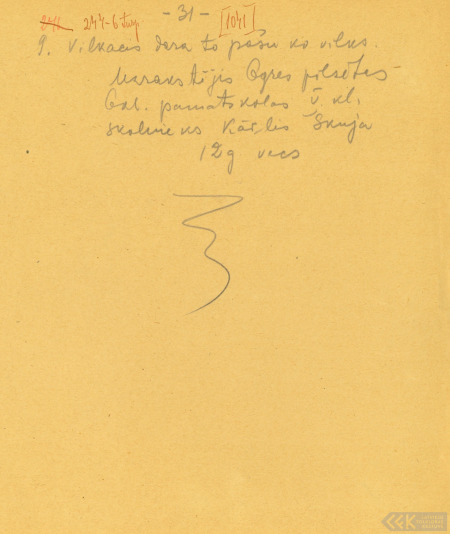 - 31 - [1041]
9. Vilkacis dara to pašu ko vilks.
Uzrakstījis Ogres pilsētas
6kl. pamatskolas V. kl.
skolnieks Kārlis Skuja
12g vecs